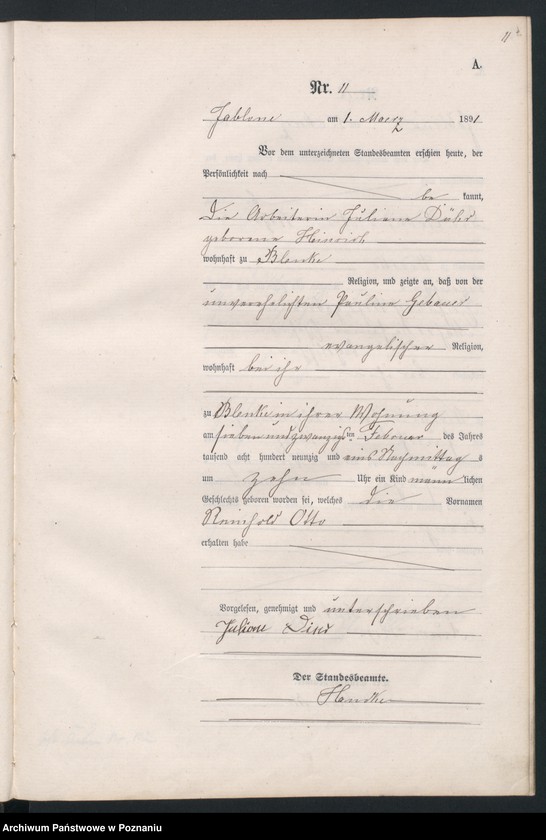 11
A.
Nr. 11
Jablone am 1. Maerz 1891
Vor dem unterzeichneten Standesbeamten erschien heute, der
Persönlichkeit nach
be kannt,
die Arbeiterin Juliane Dühr
geborene Heinrich
wohnhaft zu Blenke
Religion, und zeigte an, daß von der
unverehelichten Pauline Gebauer
evangelischer Religion,
wohnhaft bei ihr
zu Blenke in ihrer Wohnung
am sieben und zwanzigsten Februar des Jahres
tausend acht hundert neunzig und eins Nachmittag s
um zehn Uhr ein Kind männ lichen
Geschlechts geboren worden sei, welches die Vornamen
Reinhold Otto
erhalten habe
Vorgelesen, genehmigt und unterschrieben
Juliane
Der Standesbeamte.
Handke
Archiwum Państwowe w Poznaniu